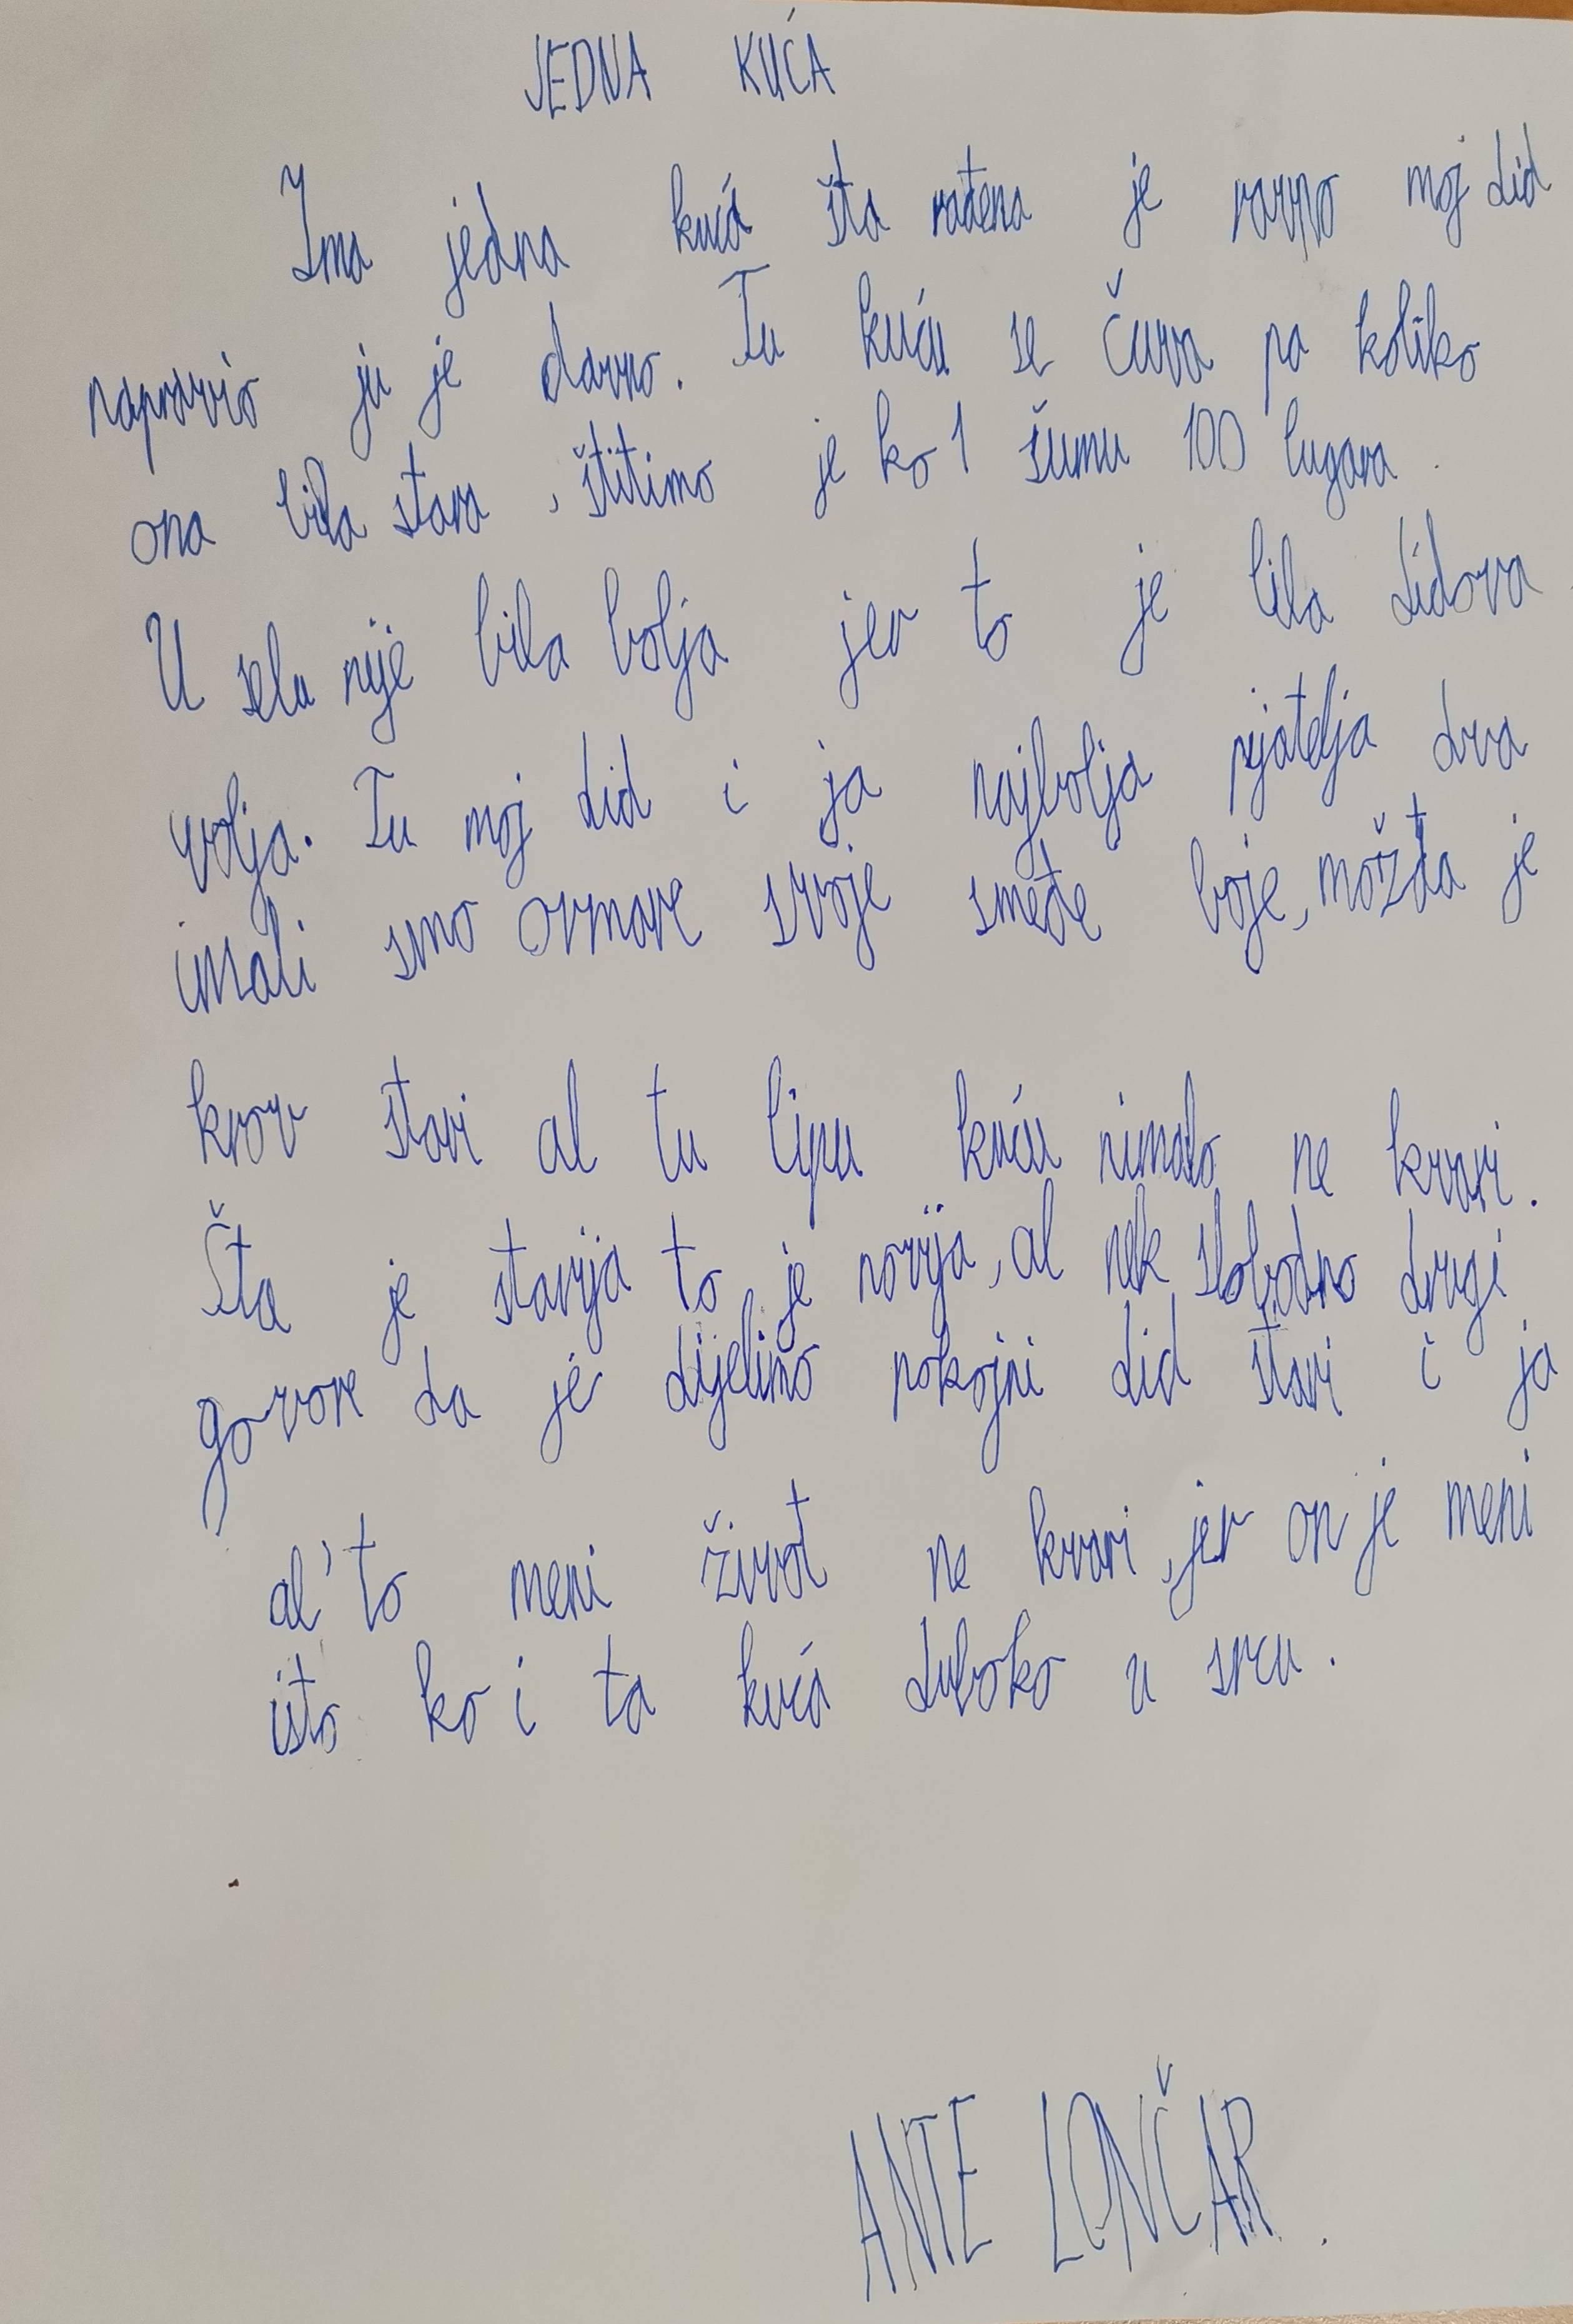 JEDNA KUĆA
Ima jedna kuća šta rađena je ravno moj did
napravio ju je davno. Tu kuću se čuva pa koliko
ona bila stara, štitimo je ko 1 šumu 100 lugara.
U selu nije bila bolja jer to je bila didova
volja. Tu moj did i ja najbolja pjatelja dva
imali smo ormare svoje smeđe boje, možda je
krov stari al tu lipu kuću nimalo ne kvari.
Šta je starija to je novija, al nek slobodno drugi
govore da je dijelimo pokojni did stari i ja
al' to meni život ne kvari, jer on je meni
isto ko i ta kuća duboko u srcu.
ANTE LONČAR.